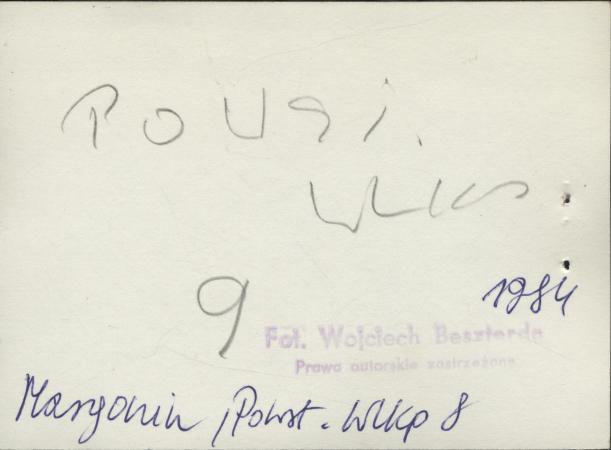 POWST.
WLKP
9
1984
Fot. Wojciech Beszterda
Prawa autorskie zastrzeżone
Margonin, Powst. Wlkp 8